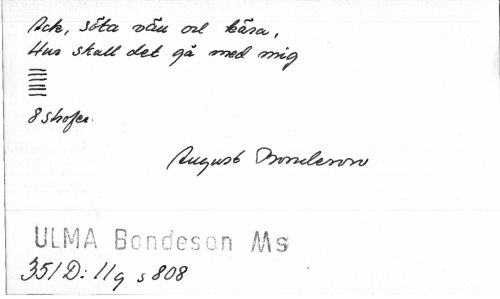 Ack, söta vän och kära,
Hur skall det gå med mig
8 strofer.
August Bondeson
ULMA Bondeson Ms
351 D: 11g s 808